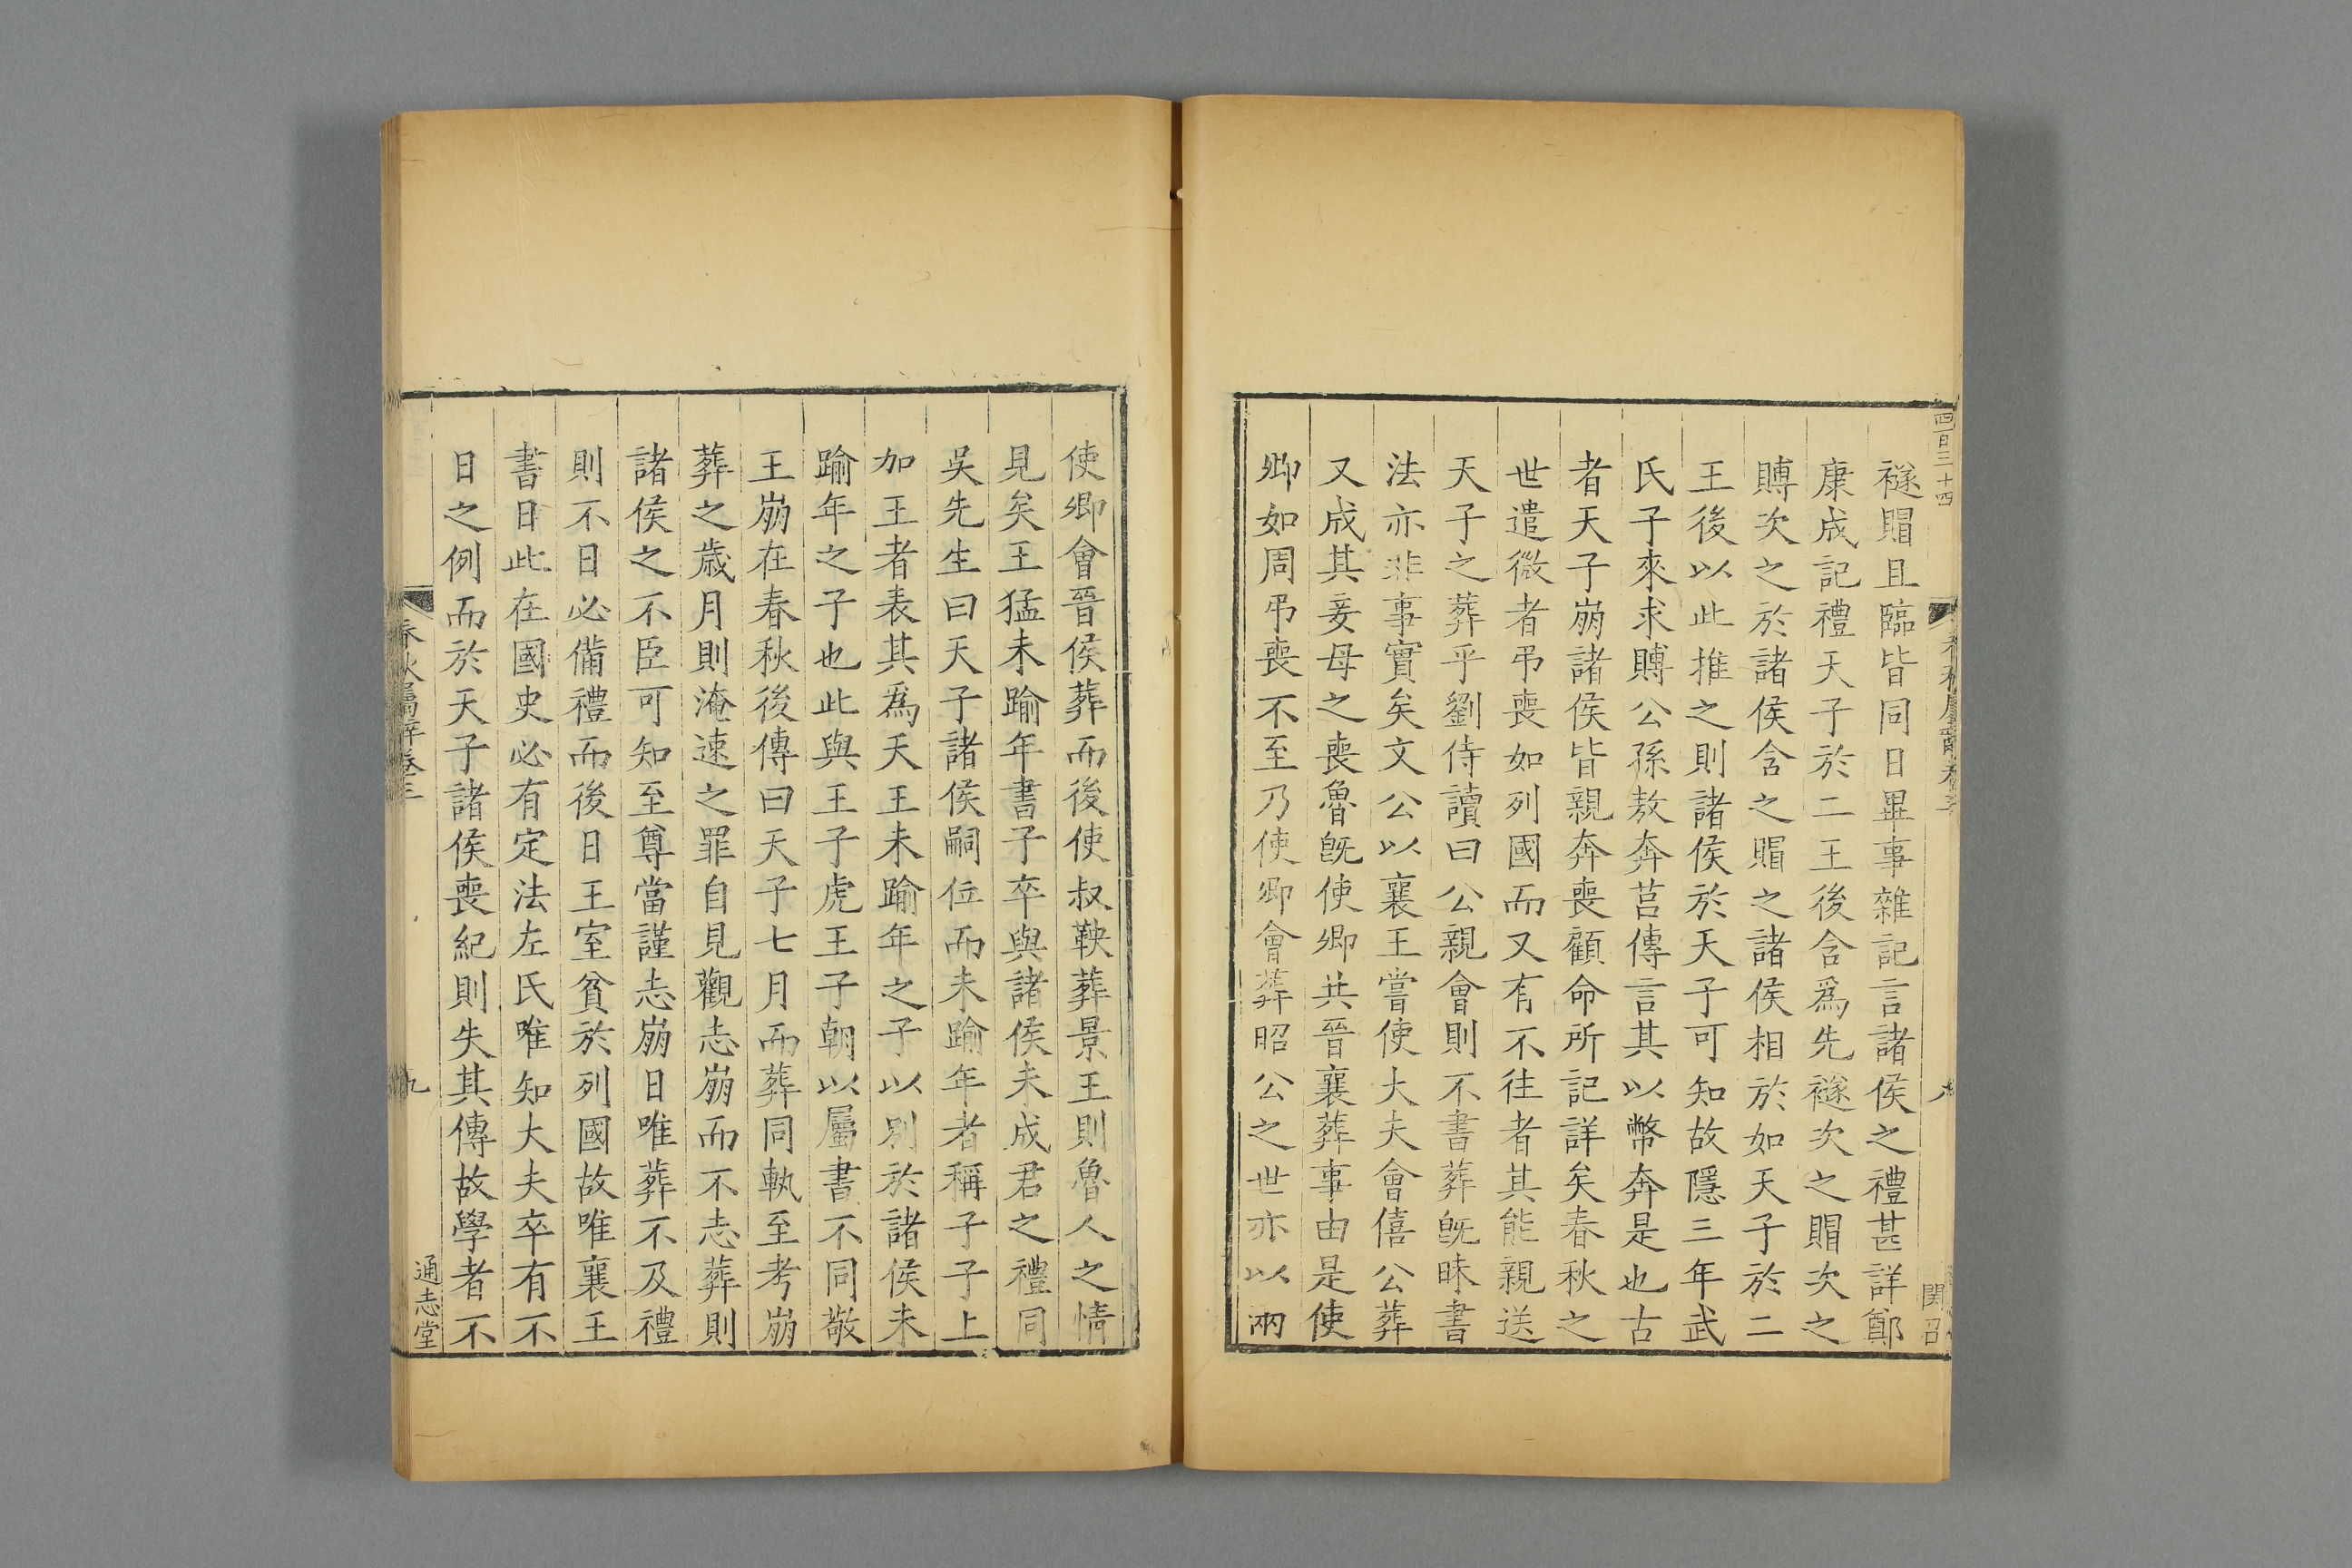 四百三十四
襚賵且臨皆同日畢事雜記言諸侯之禮甚詳鄭
康成記禮天子於二王後含為先襚次之賵次之
賻次之於諸侯含之賵之諸侯相於如天子於二
王後以此推之則諸侯於天子可知故隱三年武
氏子來求賻公孫敖奔莒傳言其以幣奔是也古
者天子崩諸侯皆親奔喪顧命所記詳矣春秋之
世遣微者弔喪如列國而又有不往者其能親送
天子之葬乎劉侍讀曰公親會則不書葬旣昧書
法亦非事實矣文公以襄王嘗使大夫會僖公葬
又成其妾母之喪魯旣使卿共晉襄葬事由是使
卿如周弔喪不至乃使卿會葬昭公之世亦以兩
使卿會晉侯葬而後使叔鞅葬景王則魯人之情
見矣王猛未踰年書子卒與諸侯未成君之禮同
吳先生曰天子諸侯嗣位而未踰年者稱子子上
加王者表其為天王未踰年之子以別於諸侯未
踰年之子也此與王子虎王子朝以屬書不同敬
王崩在春秋後傳曰天子七月而葬同軌至考崩
葬之歲月則淹速之罪自見觀志崩而不志葬則
諸侯之不臣可知至尊當謹志崩日唯葬不及禮
則不日必備禮而後日王室貧於列國故唯襄王
書日此在國史必有定法左氏唯知大夫卒有不
日之例而於天子諸侯喪紀則失其傳故學者不
春秋屬辭卷三
九
通志堂